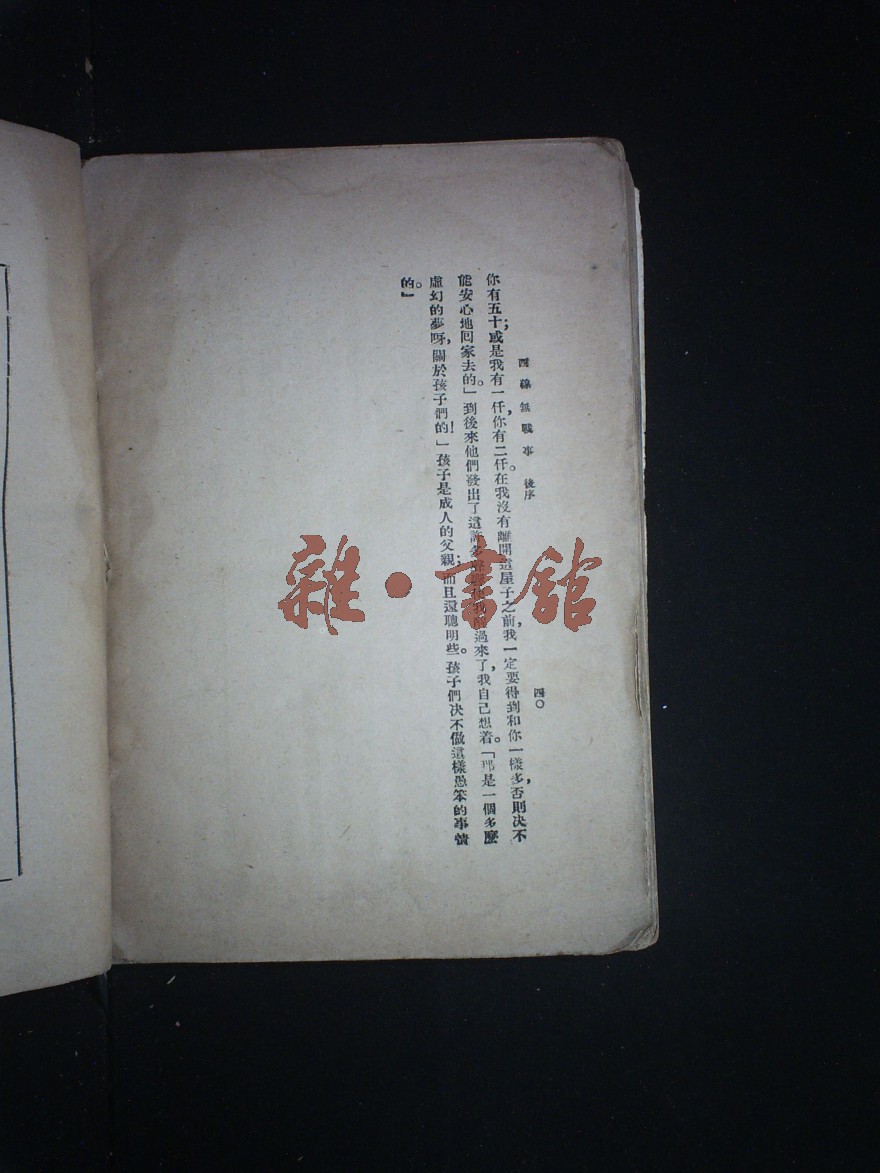 西線無戰事 後序
四〇
你有五十;或是我有一仟,你有二仟。在我沒有離開這屋子之前,我一定要得到和你一樣多,否則决不
能安心地回家去的。」到後來他們發出了這許多過來了,我自己想着。「那是一個多麼
虛幻的夢呀,關於孩子們的!」孩子是成人的父親;而且還聰明些。孩子們决不做這樣愚笨的事情
的。」
雜·書館